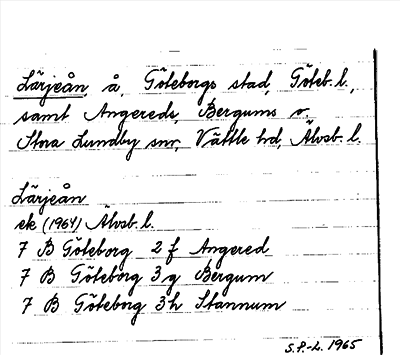 Lärjeån, å, Göteborgs stad, Göteb. l.,
samt Angereds, Bergums o.
Stora Lundby snr, Vättle hd, Älvsb. l.
Lärjeån
ek (1964) Älvsb. l.
7 B Göteborg 2 f Angered
7 B Göteborg 3 g Bergum
7 B Göteborg 3 h Stannum
S.P.-L. 1965